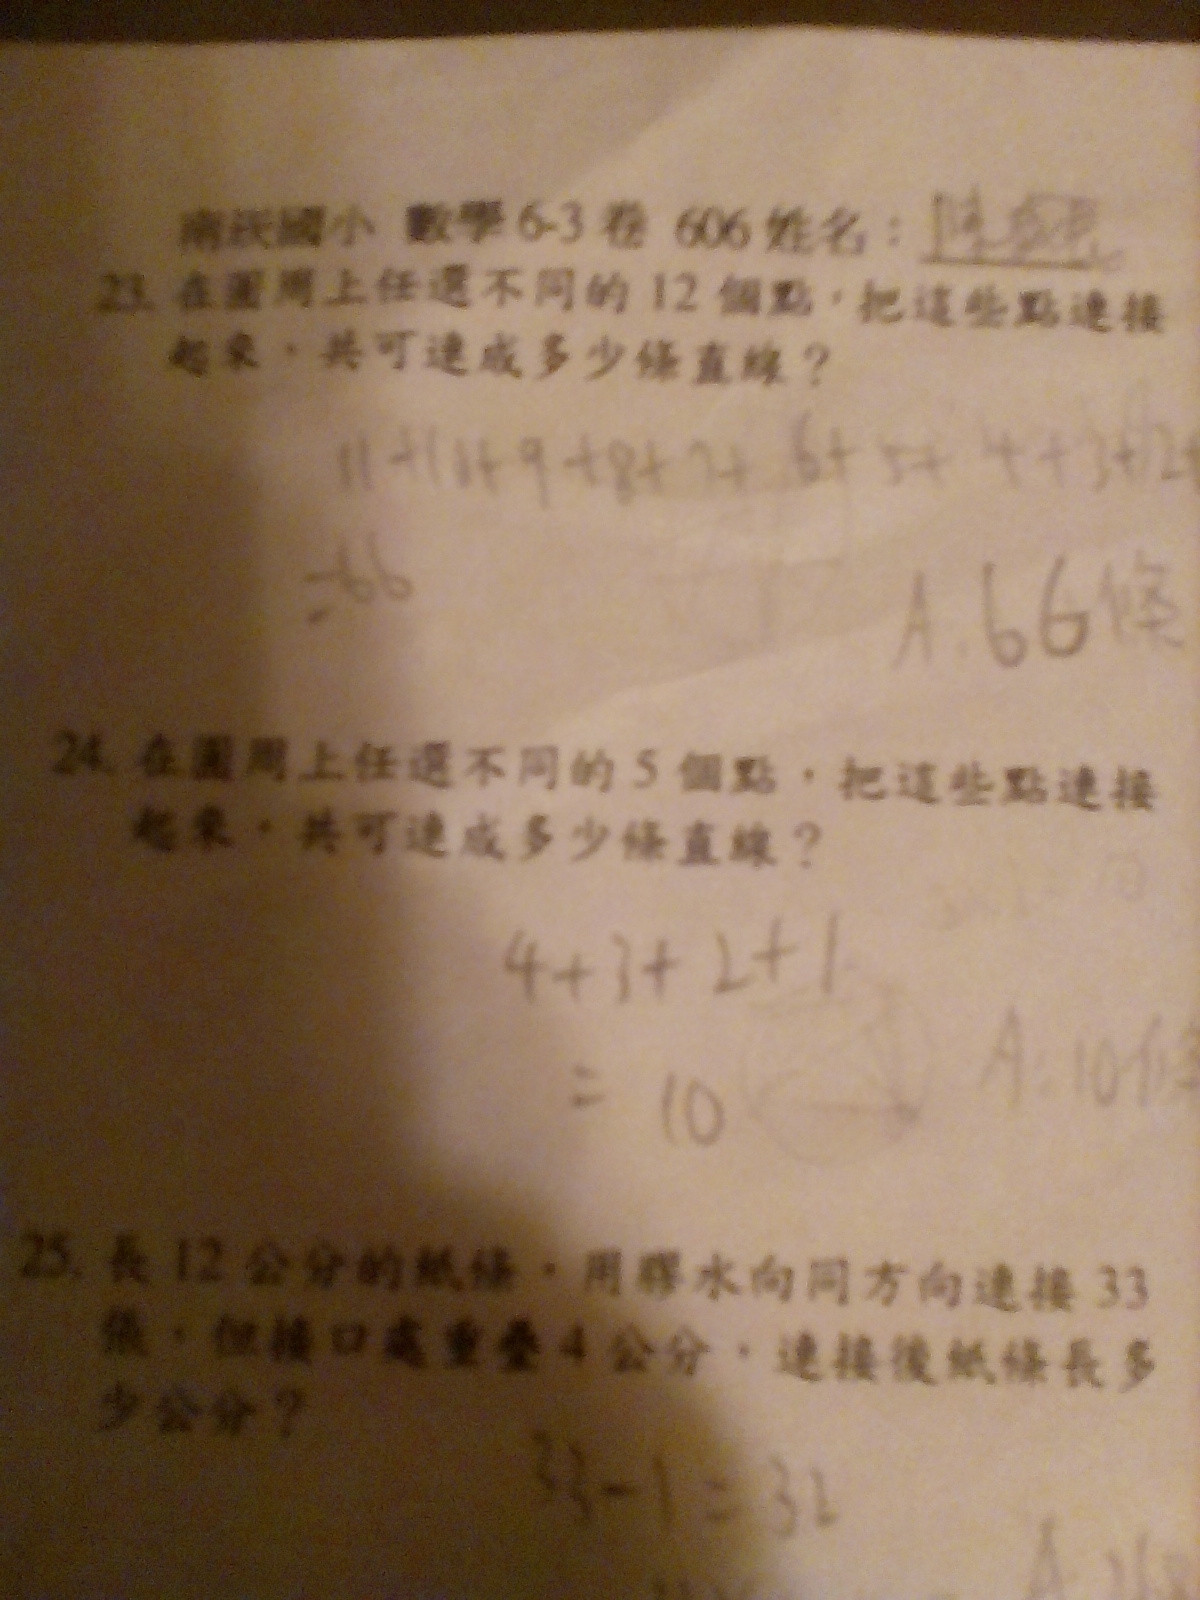 南崁國小 數學 6-3 卷 606 姓名：陳
23. 在圓周上任選不同的 12 個點，把這些點連接
起來，共可連成多少條直線？
11+10+9+8+7+6+5+4+3+2+
=66
A.66條
24. 在圓周上任選不同的 5 個點，把這些點連接
起來，共可連成多少條直線？
4+3+2+1
= 10
A:10條
25. 長 12 公分的紙條，用膠水向同方向連接 33
張，但接口處重疊 4 公分，連接後紙條長多
少公分？
33-1=32
A.268